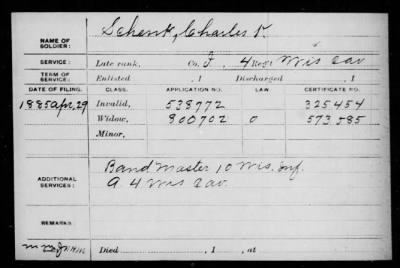 NAME OF SOLDIER: Schenk, Charles K.
SERVICE: Late rank, Co. F, 4 Reg't Wis Cav
TERM OF SERVICE: Enlisted , 1 Discharged , 1
DATE OF FILING. CLASS. APPLICATION NO. LAW CERTIFICATE NO.
1885 Apr, 29 Invalid, 538772 325454
Widow, 800702 0 573.585
Minor,
ADDITIONAL SERVICES: Band Master 10 Wis. Inf.
A 4 Wis Cav.
REMARKS:
Died , 1 , at